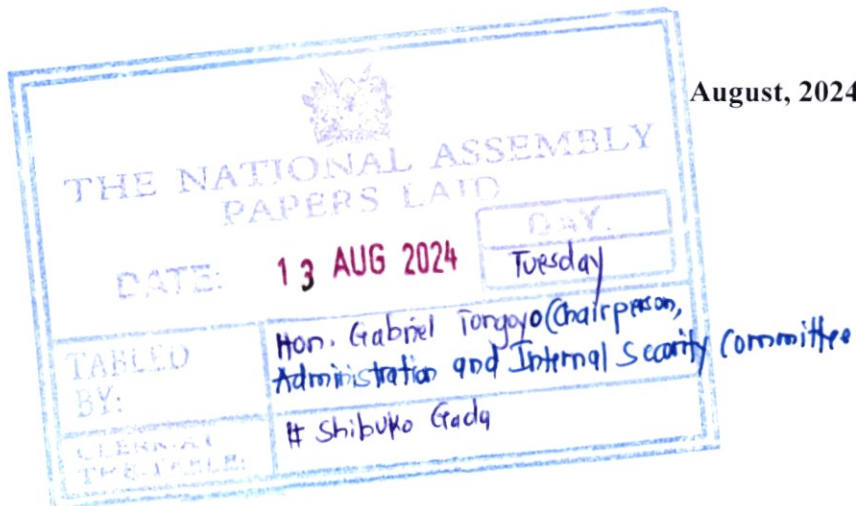 August, 2024
THE NATIONAL ASSEMBLY
PAPERS LAID
DATE: 13 AUG 2024
DAY.
Tuesday
TABLED BY:
Hon. Gabriel Tongoyo (Chairperson,
Administration and Internal Security Committee
CLERK-AT THE-TABLE:
Shibuko Gada